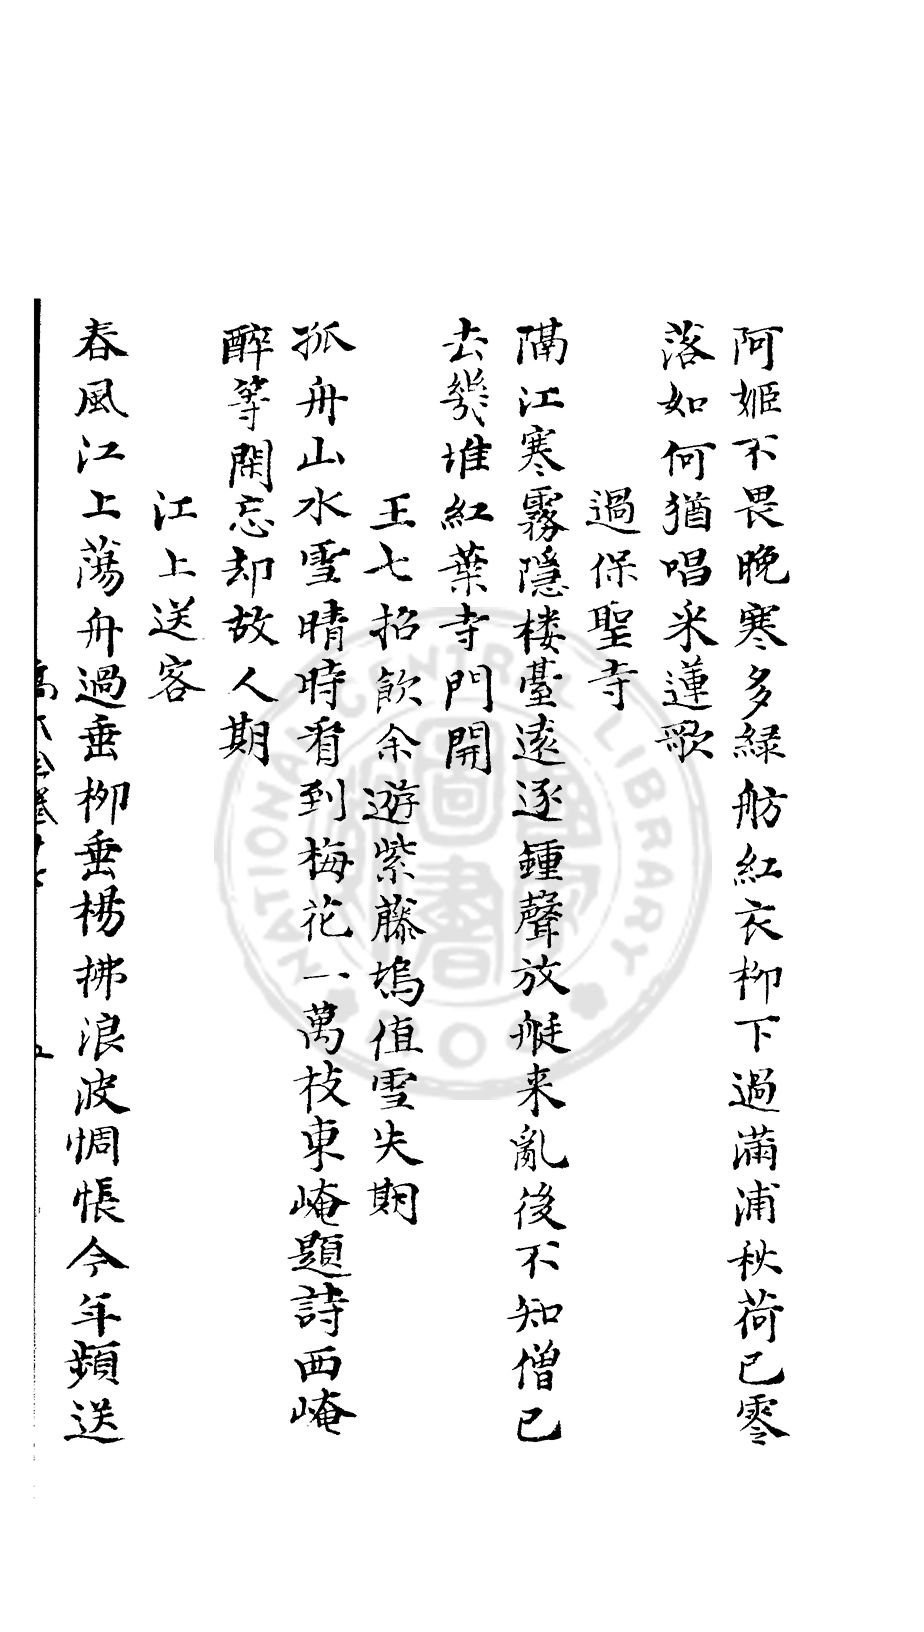 阿姬不畏晚寒多緑舫紅衣柳下過滿浦秋荷已零
落如何猶唱采蓮歌
過保聖寺
隔江寒霧隱楼臺遠逐鍾聲放艇来亂後不知僧已
去幾堆紅葉寺門開
王七招飲余遊紫藤塢值雪失期
孤舟山水雪晴時看到梅花一萬枝東崦題詩西崦
醉等閑忘却故人期
江上送客
春風江上蕩舟過垂柳垂楊拂浪波惆悵今年頻送
NATIONAL CENTRAL LIBRARY
國家圖書館